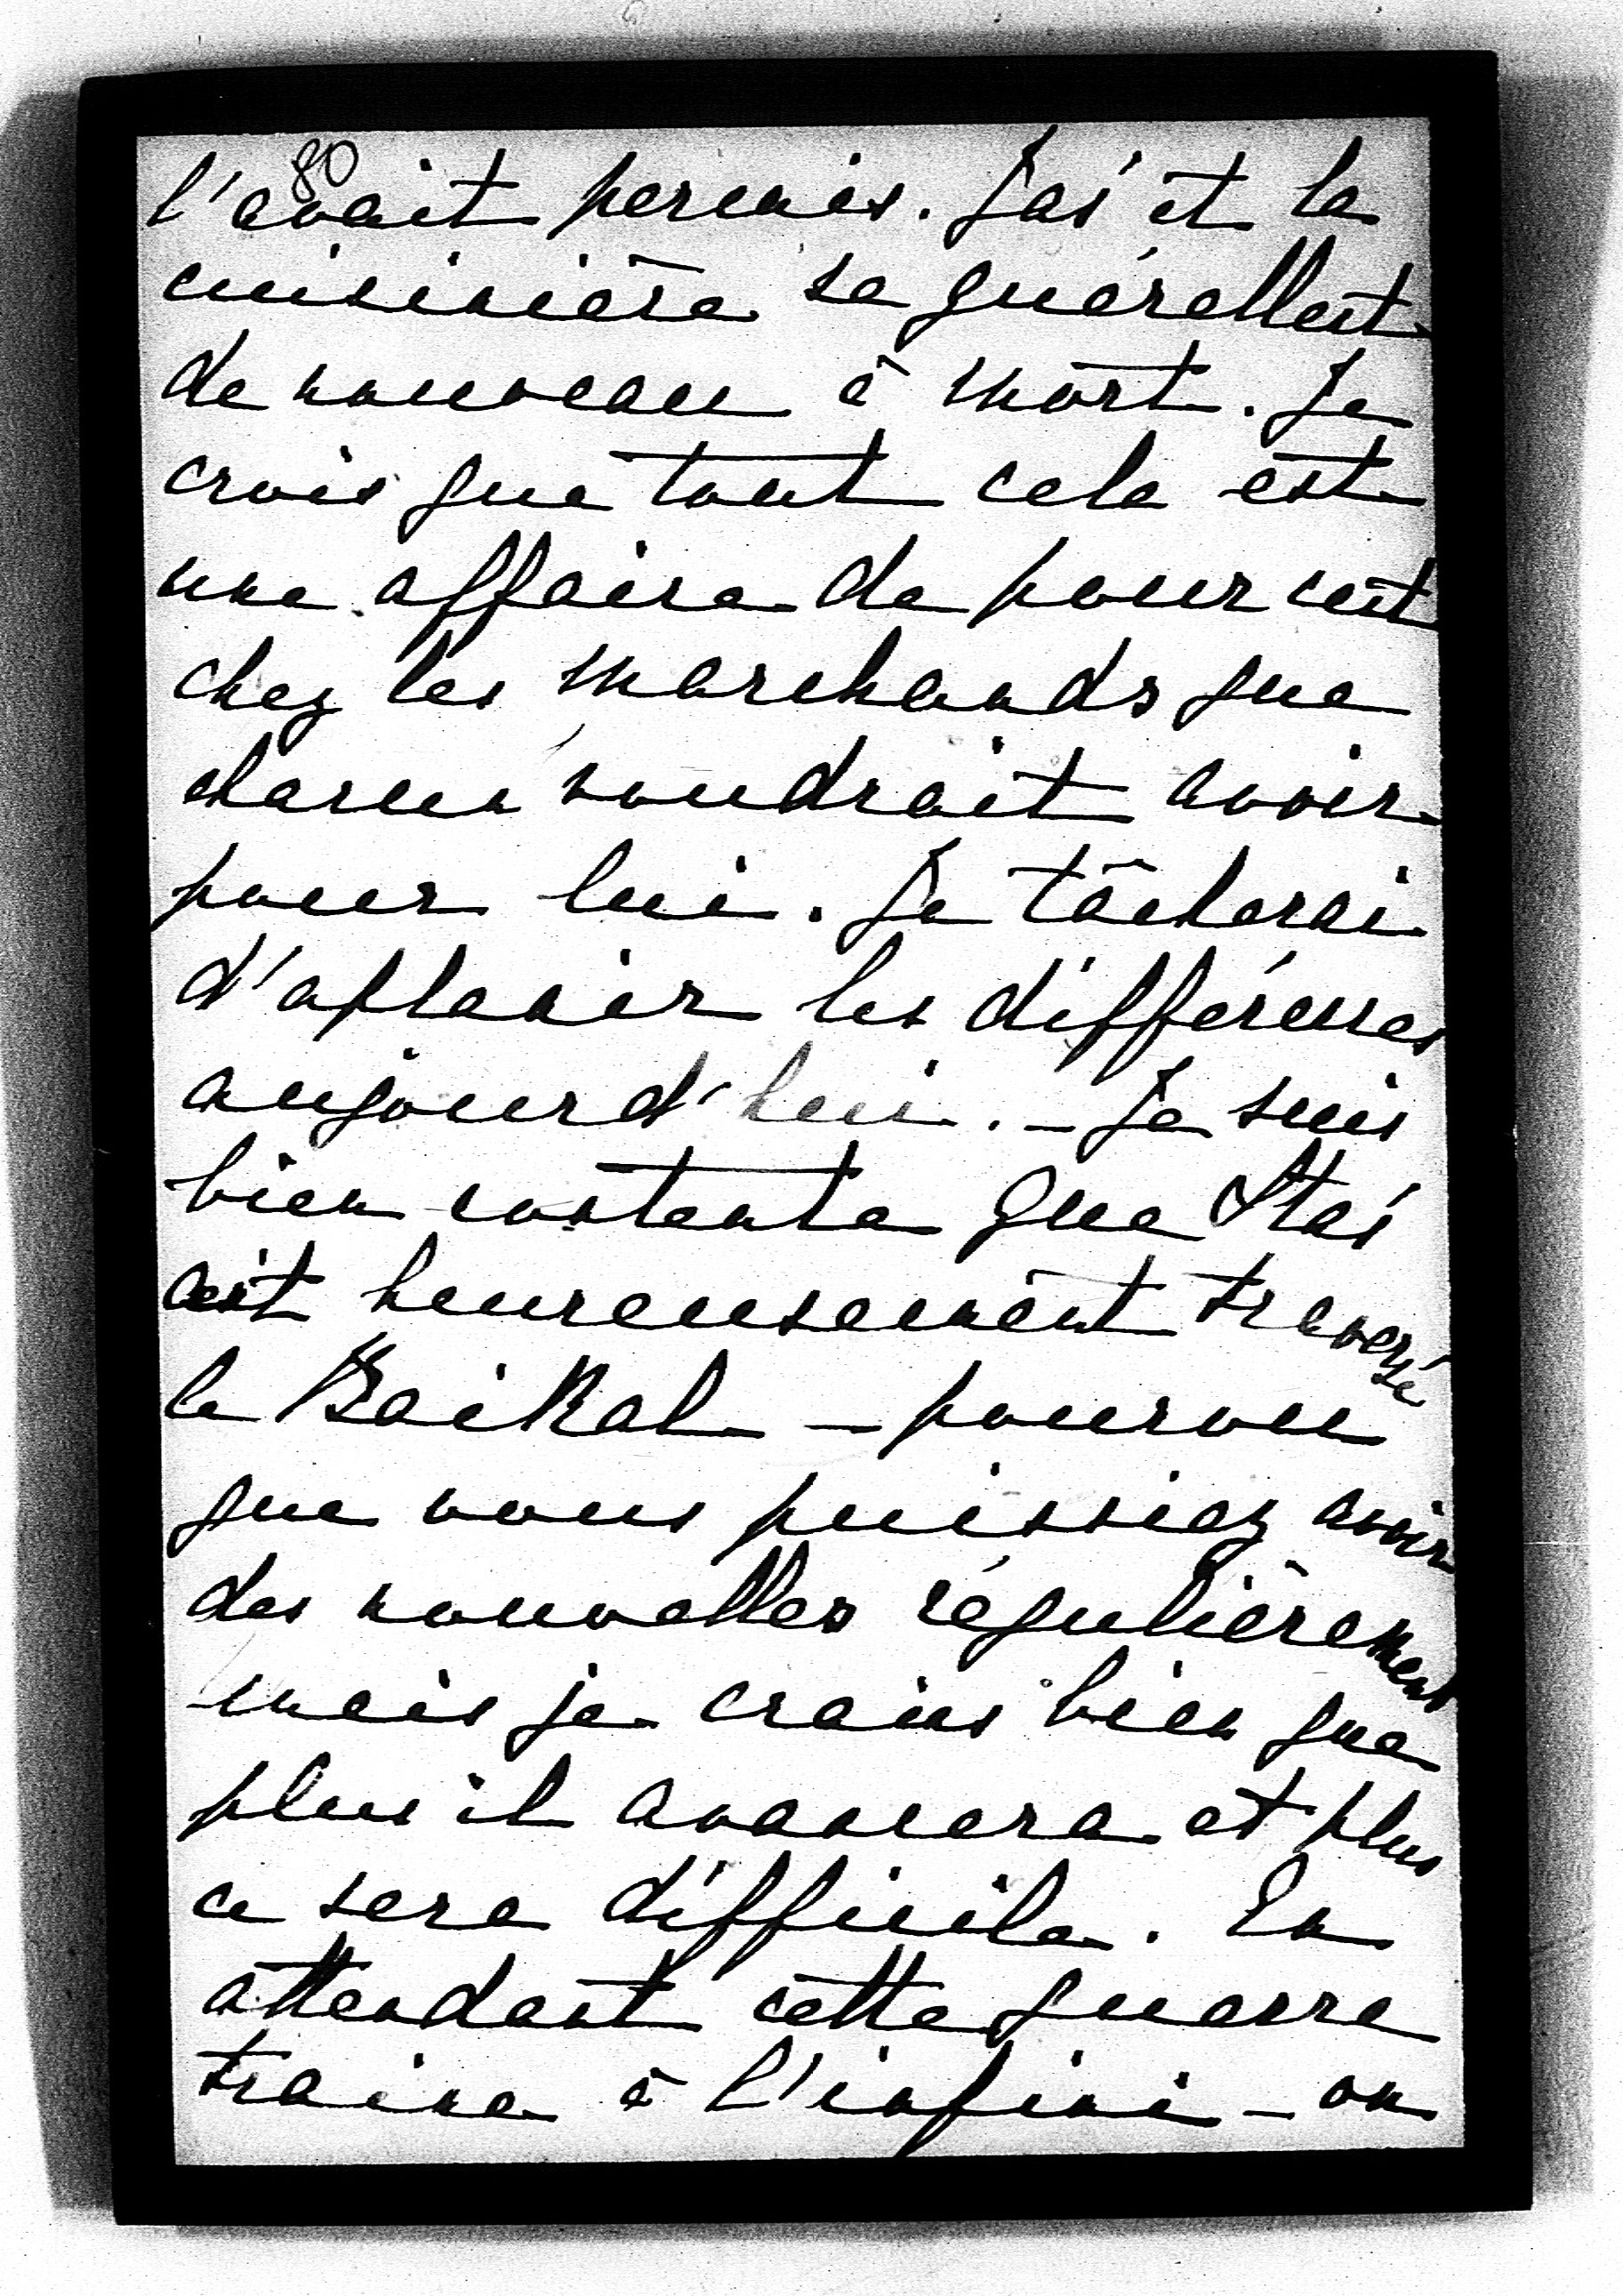 80
l'avait permis. Jas' et la
cuisinière se quérellent
de nouveau à mort. Je
crois que tout cela est
une affaire de pour cent
chez les marchands que
chacun voudrait avoir
pour lui. Je tâcherai
d'aplanir les différences
aujourd'hui. – Je suis
bien contente que Stas'
ait heureusement traversé
le Baikal – pourvu
que vous puissiez avoir
des nouvelles régulièrement
mais je crains bien que
plus il avancera et plus
ce sera difficile. En
attendant cette guerre
traine à l'infini – on